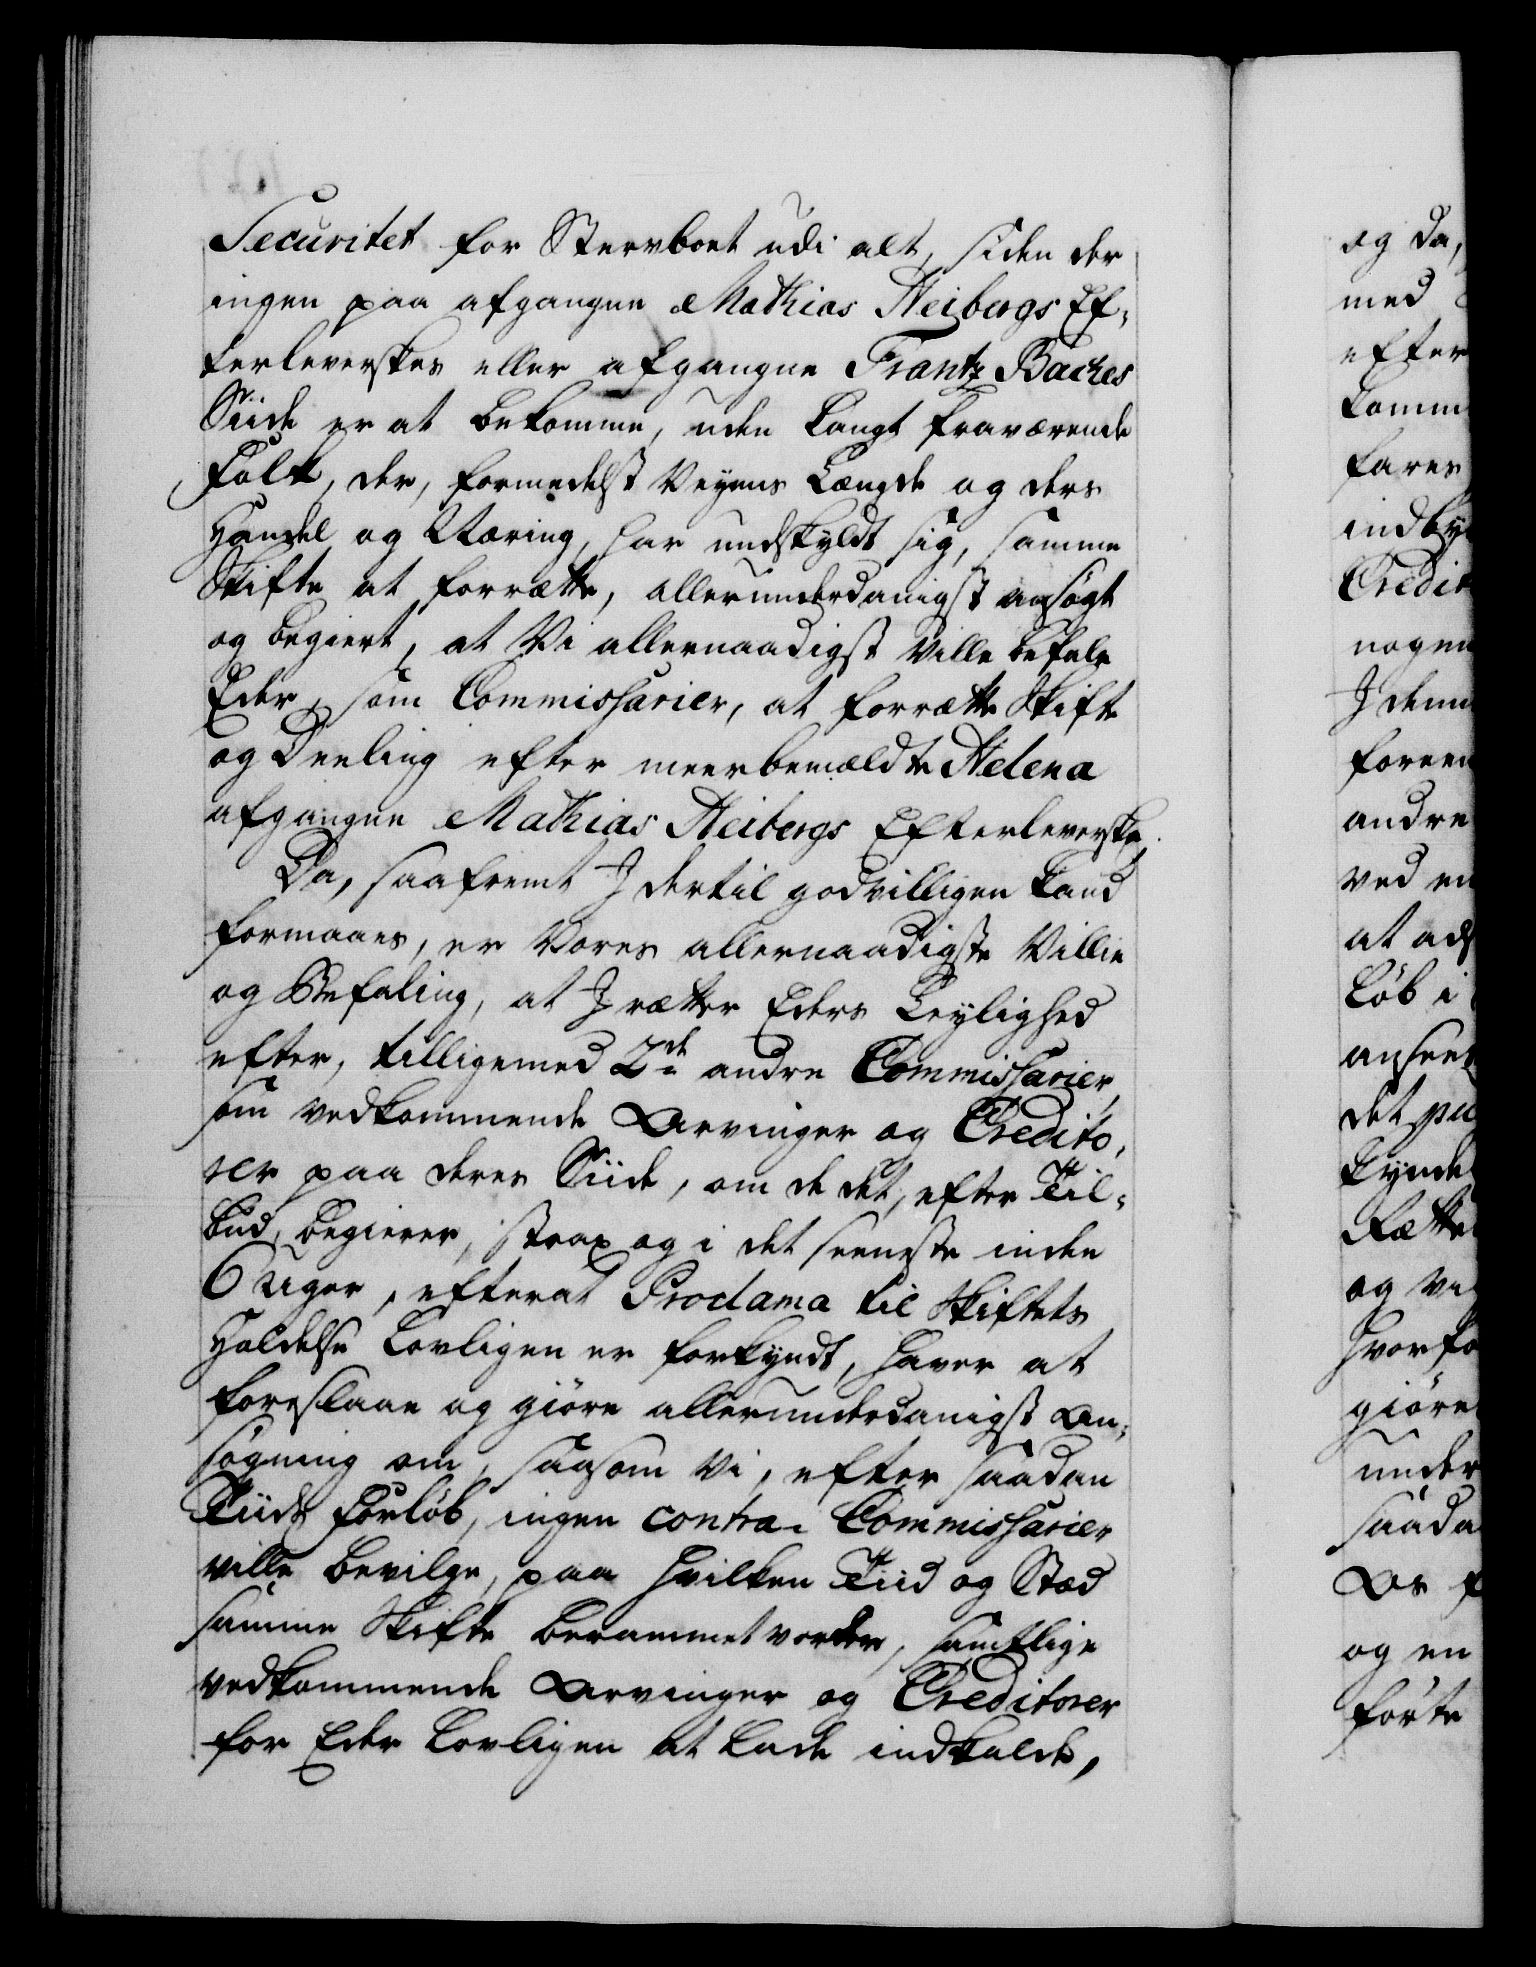 Securitet for Stervboet udi alt, siden der
ingen paa afgangne Mathias Heibergs Ef-
terleverskes eller afgangne Frantz Baches
Siide er at bekomme, uden langt fraværende
Folk, der, formedelst Veyens Længde og ders
Handel og Næring, har undskyldt sig, samme
Skifte at forrætte, allerunderdanigst ansøgt
og begiert, at Vi allernaadigst ville befale
Eder, som Commissarier, at forrætte Skifte
og Deeling efter meerbemældte Helena
afgangne Mathias Heibergs Efterleverske.
Da, saafremt I dertil godvilligen kand
formaaes, er Vores allernaadigste Villie
og Befaling, at I rætter Eders Leylighed
efter, tilligemed 2de andre Commissarier,
som vedkommende Arvinger og Credito-
rer paa deres Siide, om de det, efter Til-
bud, begierer, strax og i det seeneste inden
6 Uger, efterat Proclama til Skiftets
Holdelse lovligen er forkyndt, haver at
foreslaae og giøre allerunderdanigst An-
søgning om, saasom Vi, efter saadan
Tiids Forløb, ingen contra-Commissarier
ville bevilge, paa hvilken Tiid og Stæd
samme Skifte berammet vorder, samtlige
vedkommende Arvinger og Creditorer
for Eder lovligen at lade indkalde,
og da,
med
efter
komm
fares
indby
Credit
nogen
I denn
foreen
andre
ved en
at ads
løb i
ansee
det paa
kynde
Rætte
og Vi
hvorfo
giøre
under
saada
Os f
og en
førte